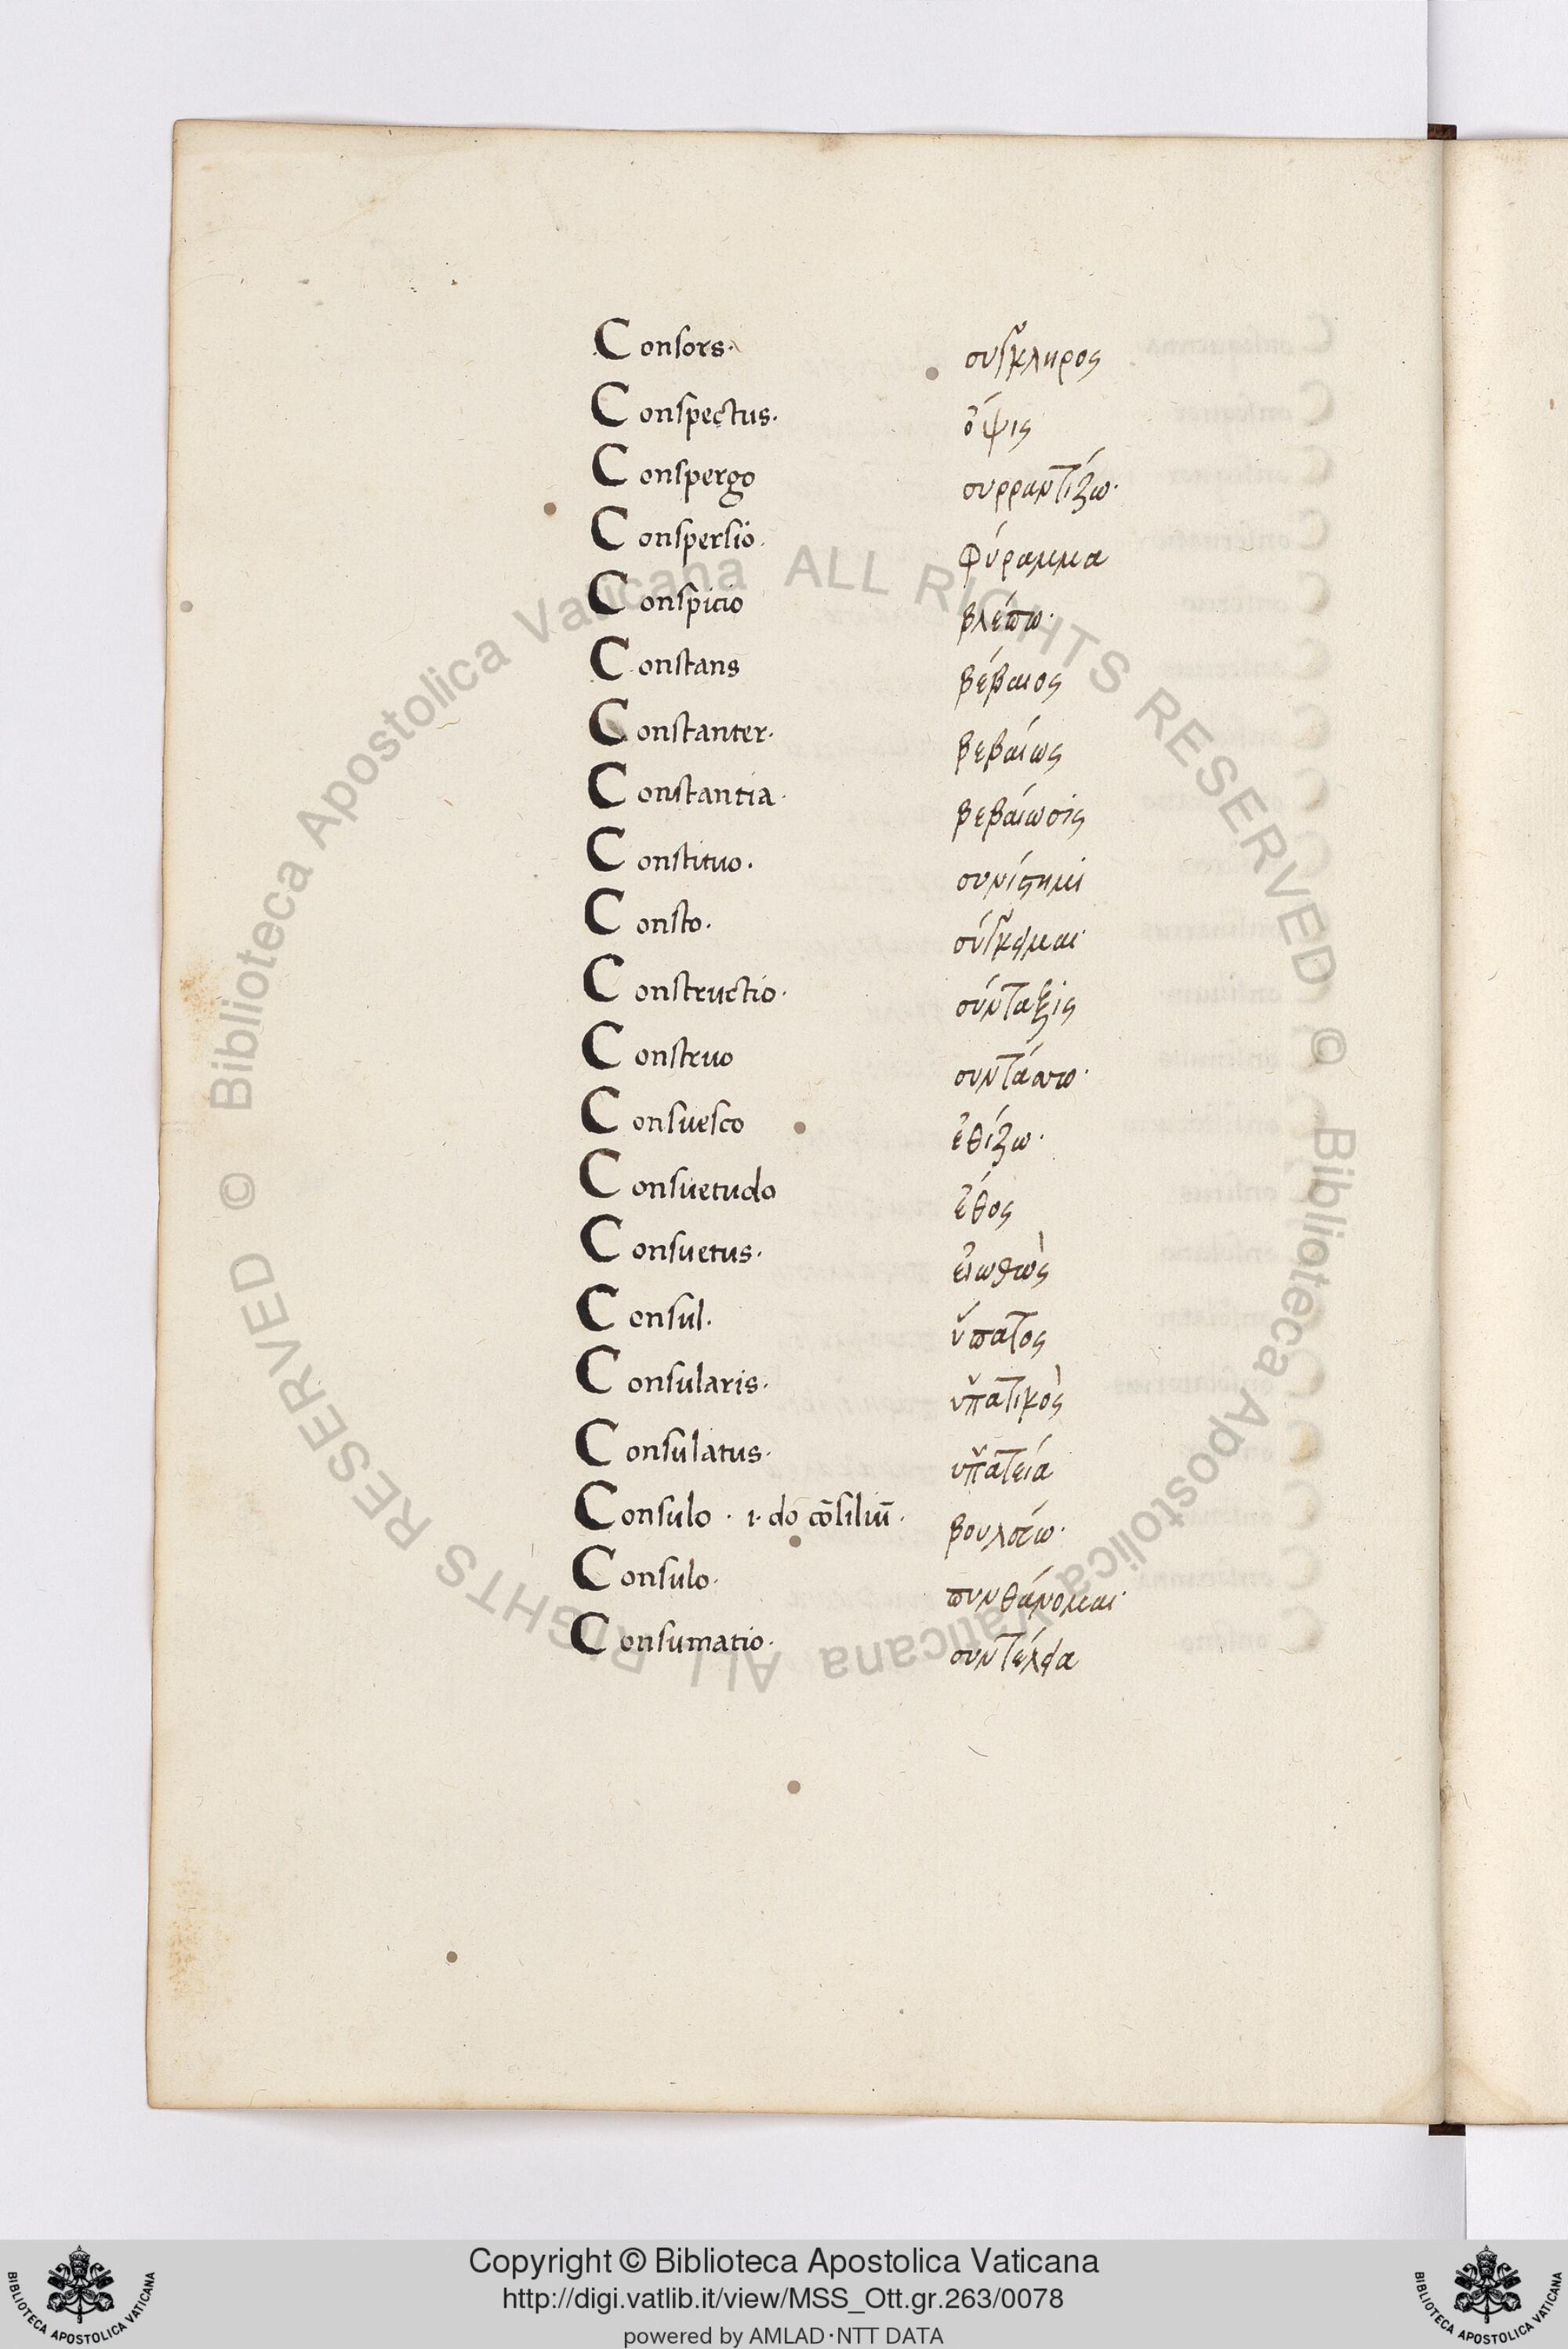 Consors. σύγκληρος
Conspectus. ὄψις
Conspergo συρραντίζω.
Conspersio. φύραμμα
Conspicio βλέπω.
Constans βέβαιος
Constanter. βεβαίως
Constantia. βεβαίωσις
Constituo. συνίστημι
Consto. σύγκειμαι
Constructio. σύνταξις
Construo συντάττω.
Consuesco ἐθίζω.
Consuetudo ἔθος
Consuetus. εἰωθὼς
Consul. ὕπατος
Consularis. ὑπατικὸς
Consulatus. ὑπατεία
Consulo. i. do cōsiliū. βουλεύω.
Consulo. πυνθάνομαι
Consumatio. συντέλεια
© Biblioteca Apostolica Vaticana ALL RIGHTS RESERVED
© Biblioteca Apostolica Vaticana ALL RIGHTS RESERVED
Copyright © Biblioteca Apostolica Vaticana
http://digi.vatlib.it/view/MSS_Ott.gr.263/0078
powered by AMLAD·NTT DATA
BIBLIOTECA APOSTOLICA VATICANA
BIBLIOTECA APOSTOLICA VATICANA